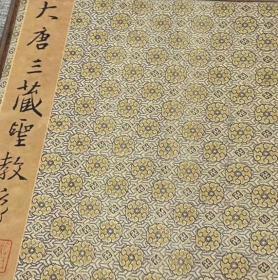 大唐三藏聖教序